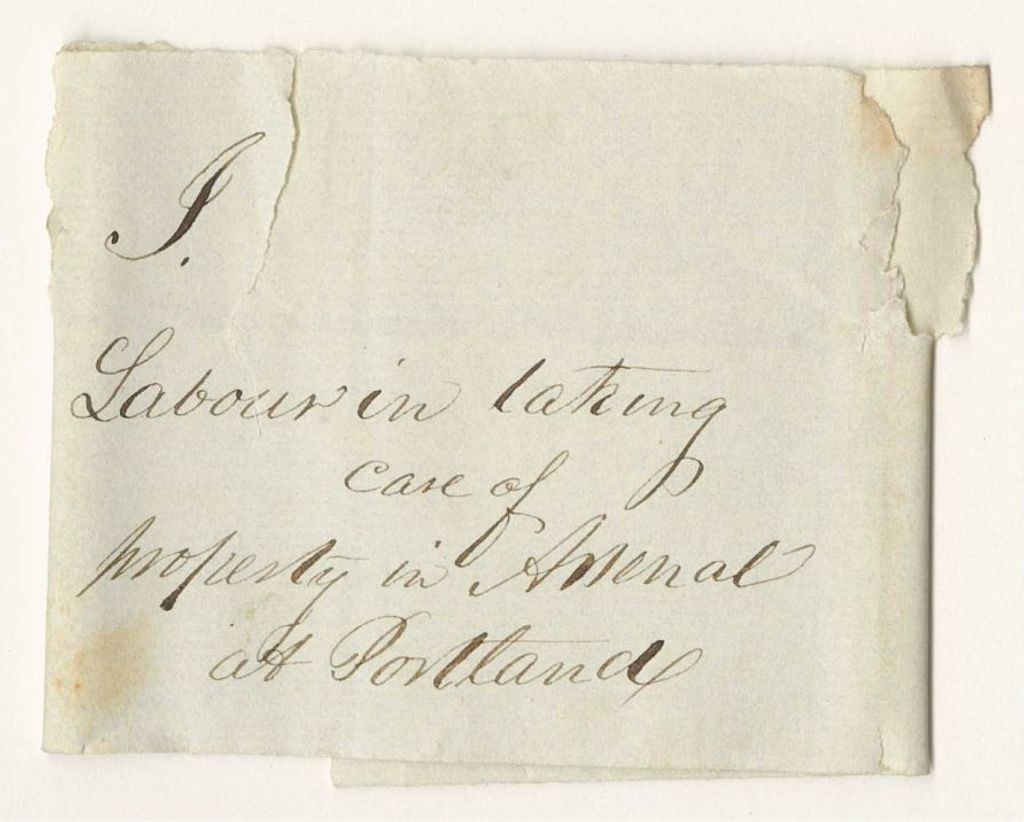 I.
Labour in taking
care of
property in Arsenal
at Portland